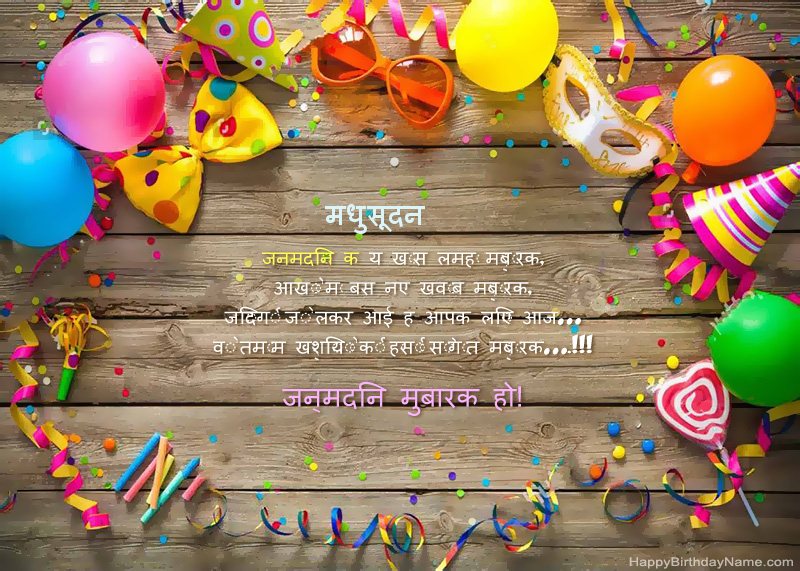 मधुसूदन
जनमदनि क य ख़ास लमहा मबूारक,
आखोंम बस नए खवाब मबूारक,
जदिंगी जो लेकर आई ह आपक लएि आज...
वो तमाम खशुयिोंकी हसीं सौगात मबूारक...!!!
जन्मदनि मुबारक हो!
HappyBirthdayName.com